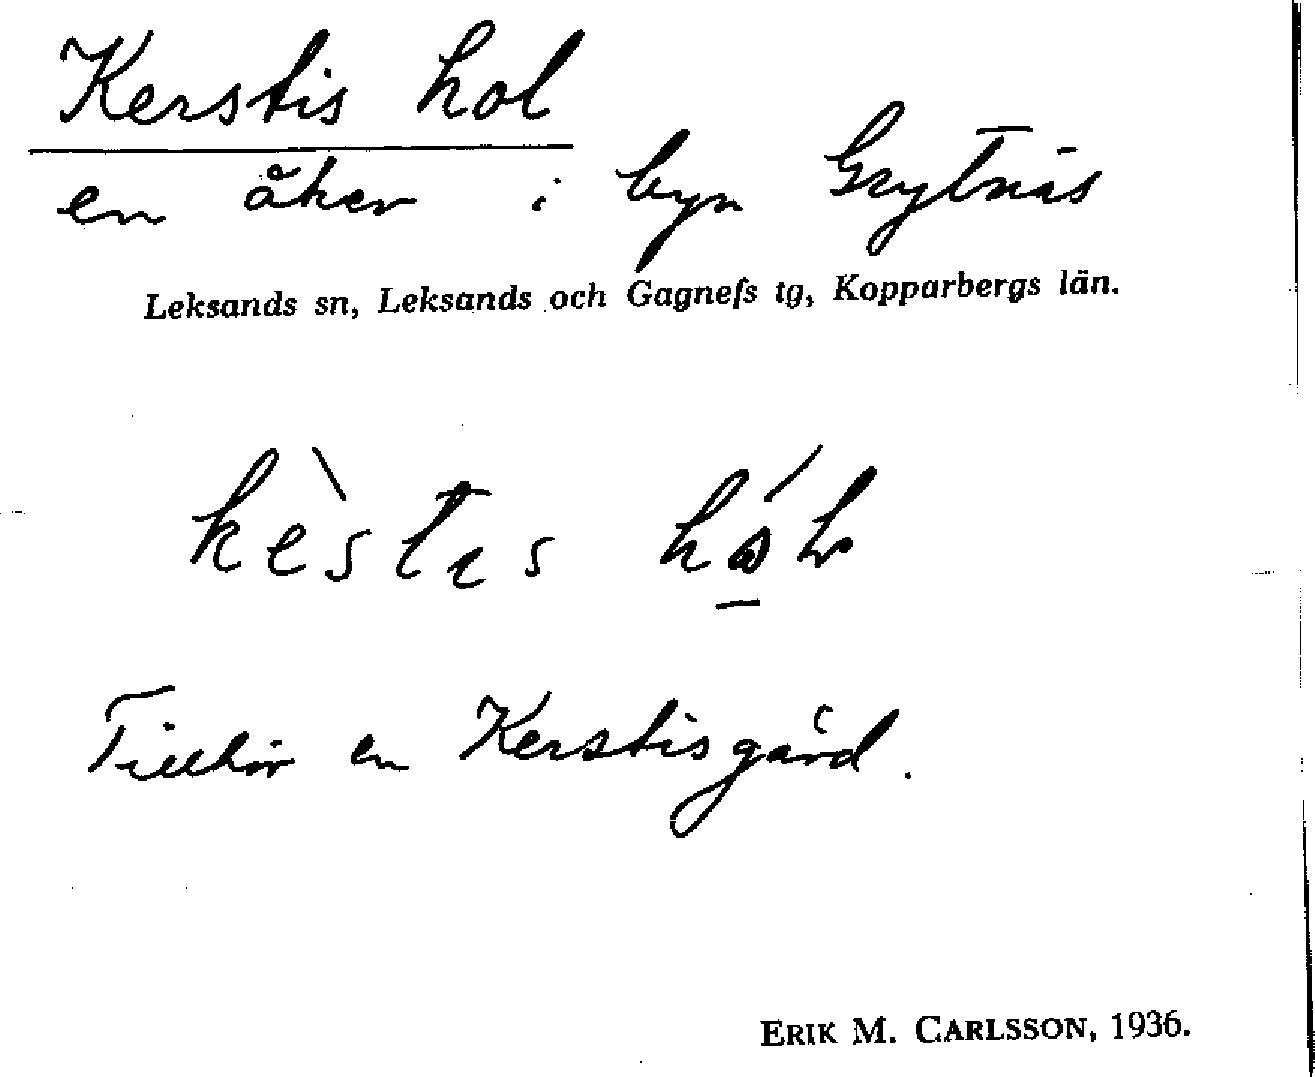 Kerstis hol
en åker i byn Grytnäs
Leksands sn, Leksands och Gagnefs tg, Kopparbergs län.
kèstɩs
Tillhör en Kerstisgård.
ERIK M. CARLSSON, 1936.